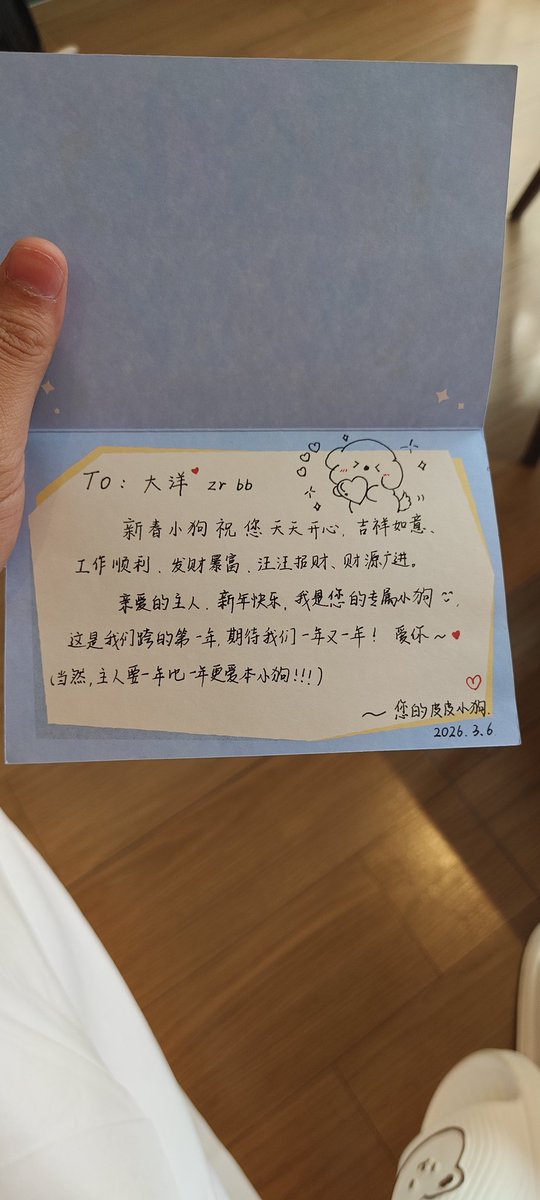 To：大洋 zr bb
新春小狗祝您天天开心，吉祥如意、
工作顺利、发财暴富、汪汪招财、财源广进。
亲爱的主人，新年快乐，我是您的专属小狗，
这是我们跨的第一年，期待我们一年又一年！爱你~
（当然，主人要一年比一年更爱本小狗!!!）
~ 您的皮皮小狗.
2026.3.6